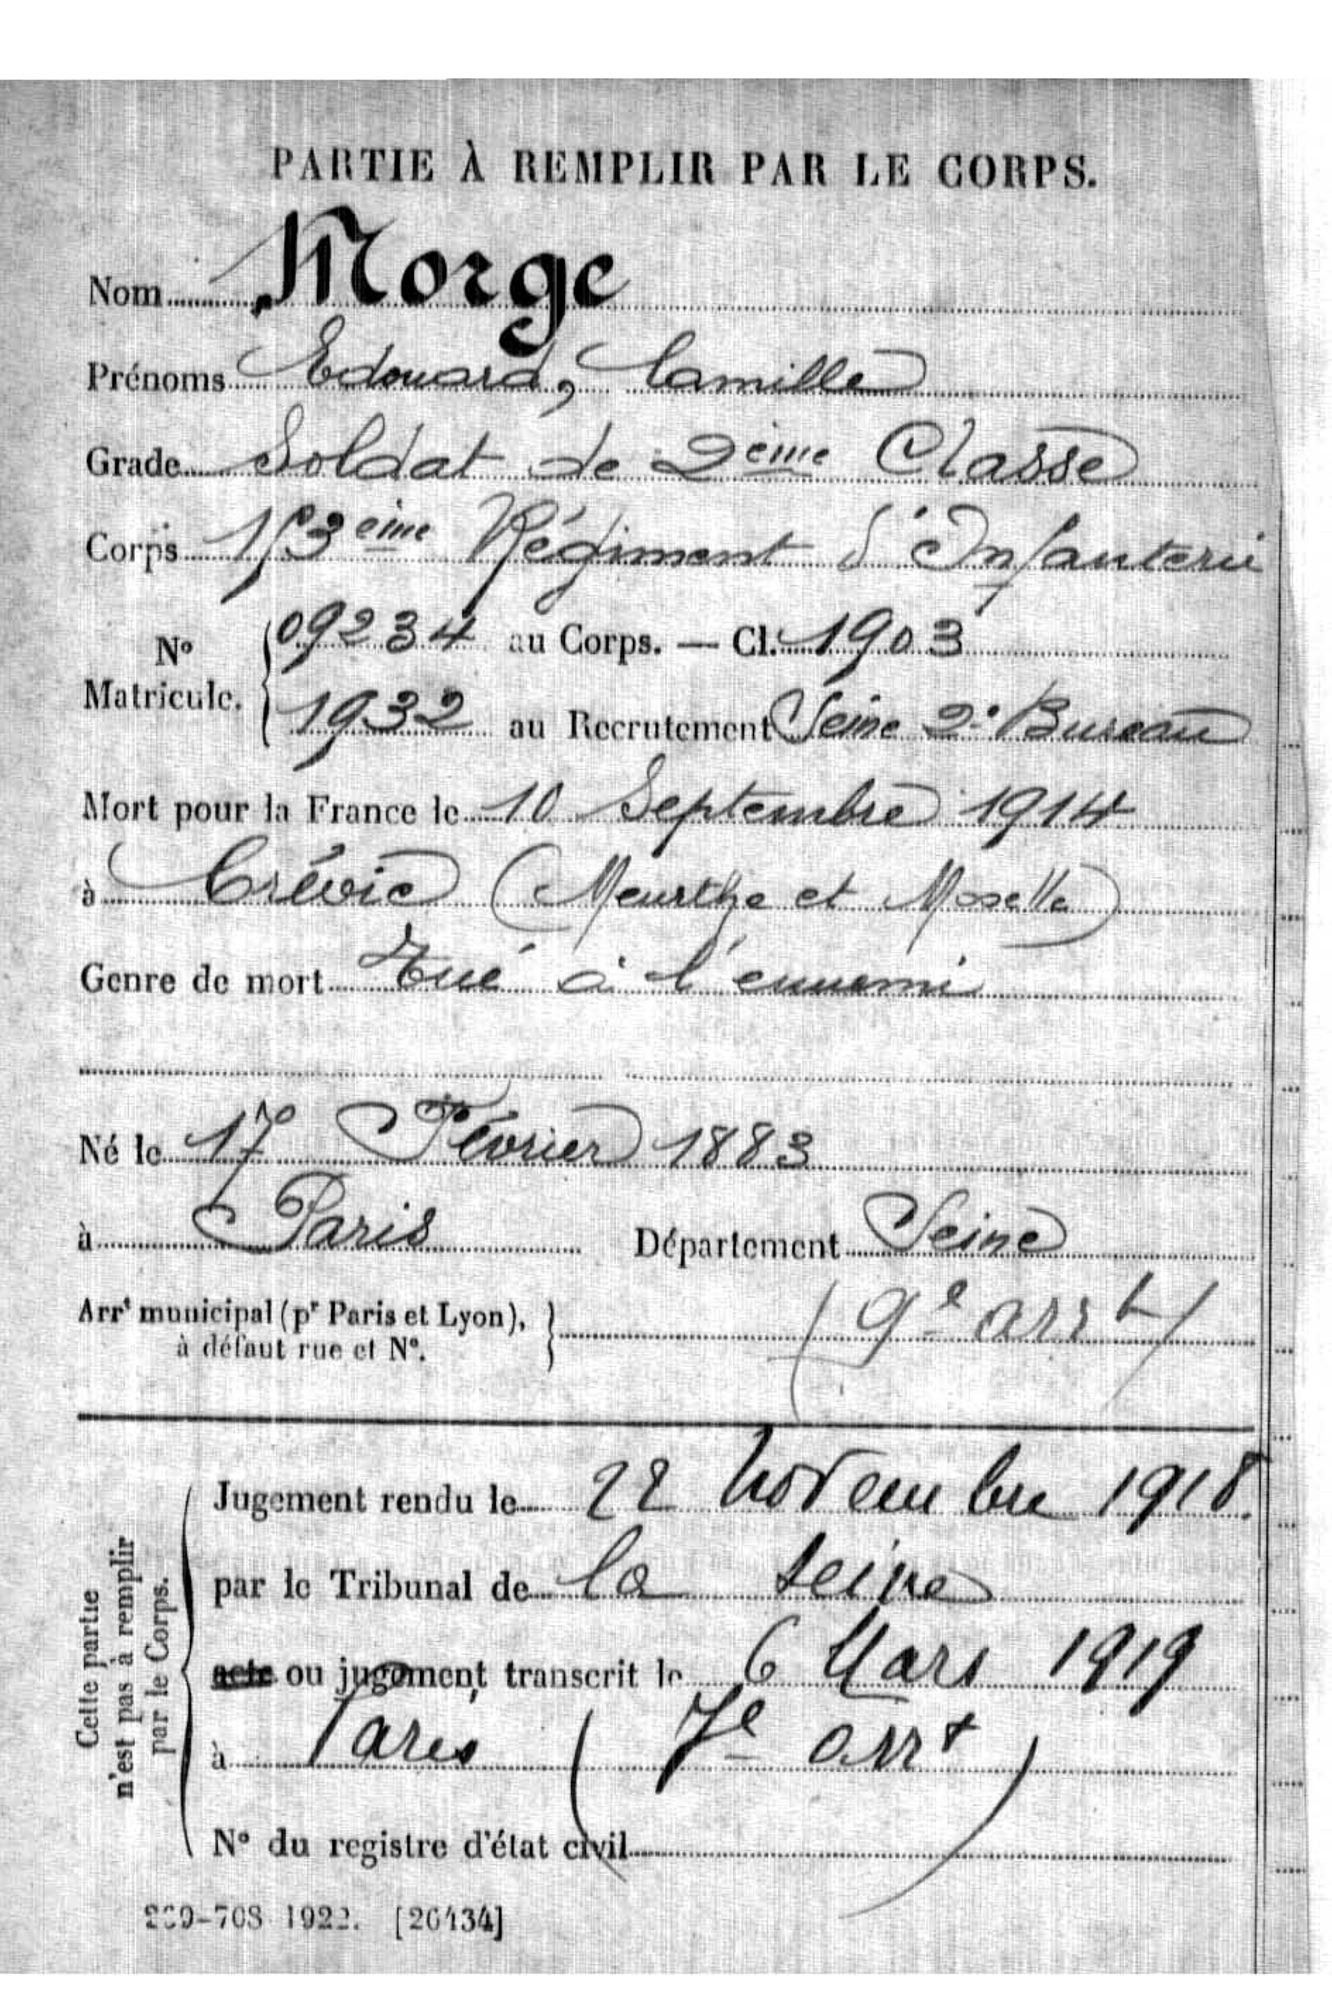 PARTIE À REMPLIR PAR LE CORPS.
Nom Morge
Prénoms Edouard, Camille
Grade Soldat de 2ème Classe
Corps 153ème Régiment d'Infanterie
N° Matricule. 09234 au Corps. — Cl. 1903
1932 au Recrutement Seine 2e Bureau
Mort pour la France le 10 Septembre 1914
à Crévic (Meurthe et Moselle)
Genre de mort Tué à l'ennemi
Né le 17 Février 1883
à Paris Département Seine
Arrt municipal (pr Paris et Lyon),
à défaut rue et N°. (9e arrt)
Cette partie
n'est pas à remplir
par le Corps.
Jugement rendu le 22 Novembre 1918.
par le Tribunal de la Seine
acte ou jugement transcrit le 6 Mars 1919
à Paris (7e arrt)
N° du registre d'état civil
-708 1922. [26434]